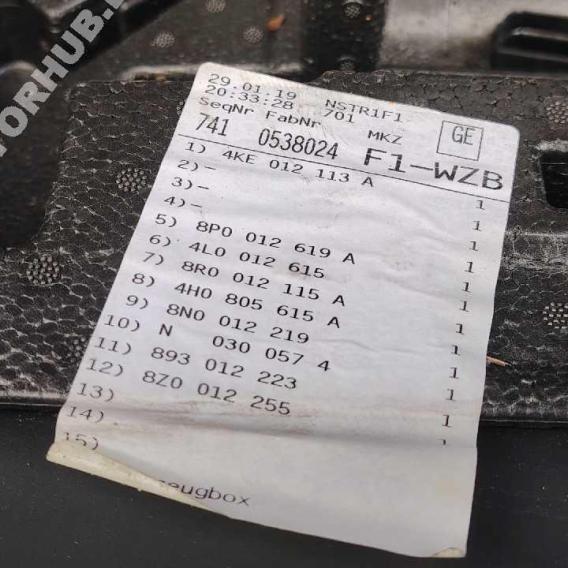 29.01.19 NSTR1F1
20:33:28 701
SeqNr FabNr MKZ GE
741 0538024 F1-WZB
1) 4KE 012 113 A 1
2)- 1
3)- 1
4)- 1
5) 8P0 012 619 A 1
6) 4L0 012 615 1
7) 8R0 012 115 A 1
8) 4H0 805 615 A 1
9) 8N0 012 219 1
10) N 030 057 4 1
11) 893 012 223 1
12) 8Z0 012 255 1
13)
14)
15)
eugbox
TORHUB.